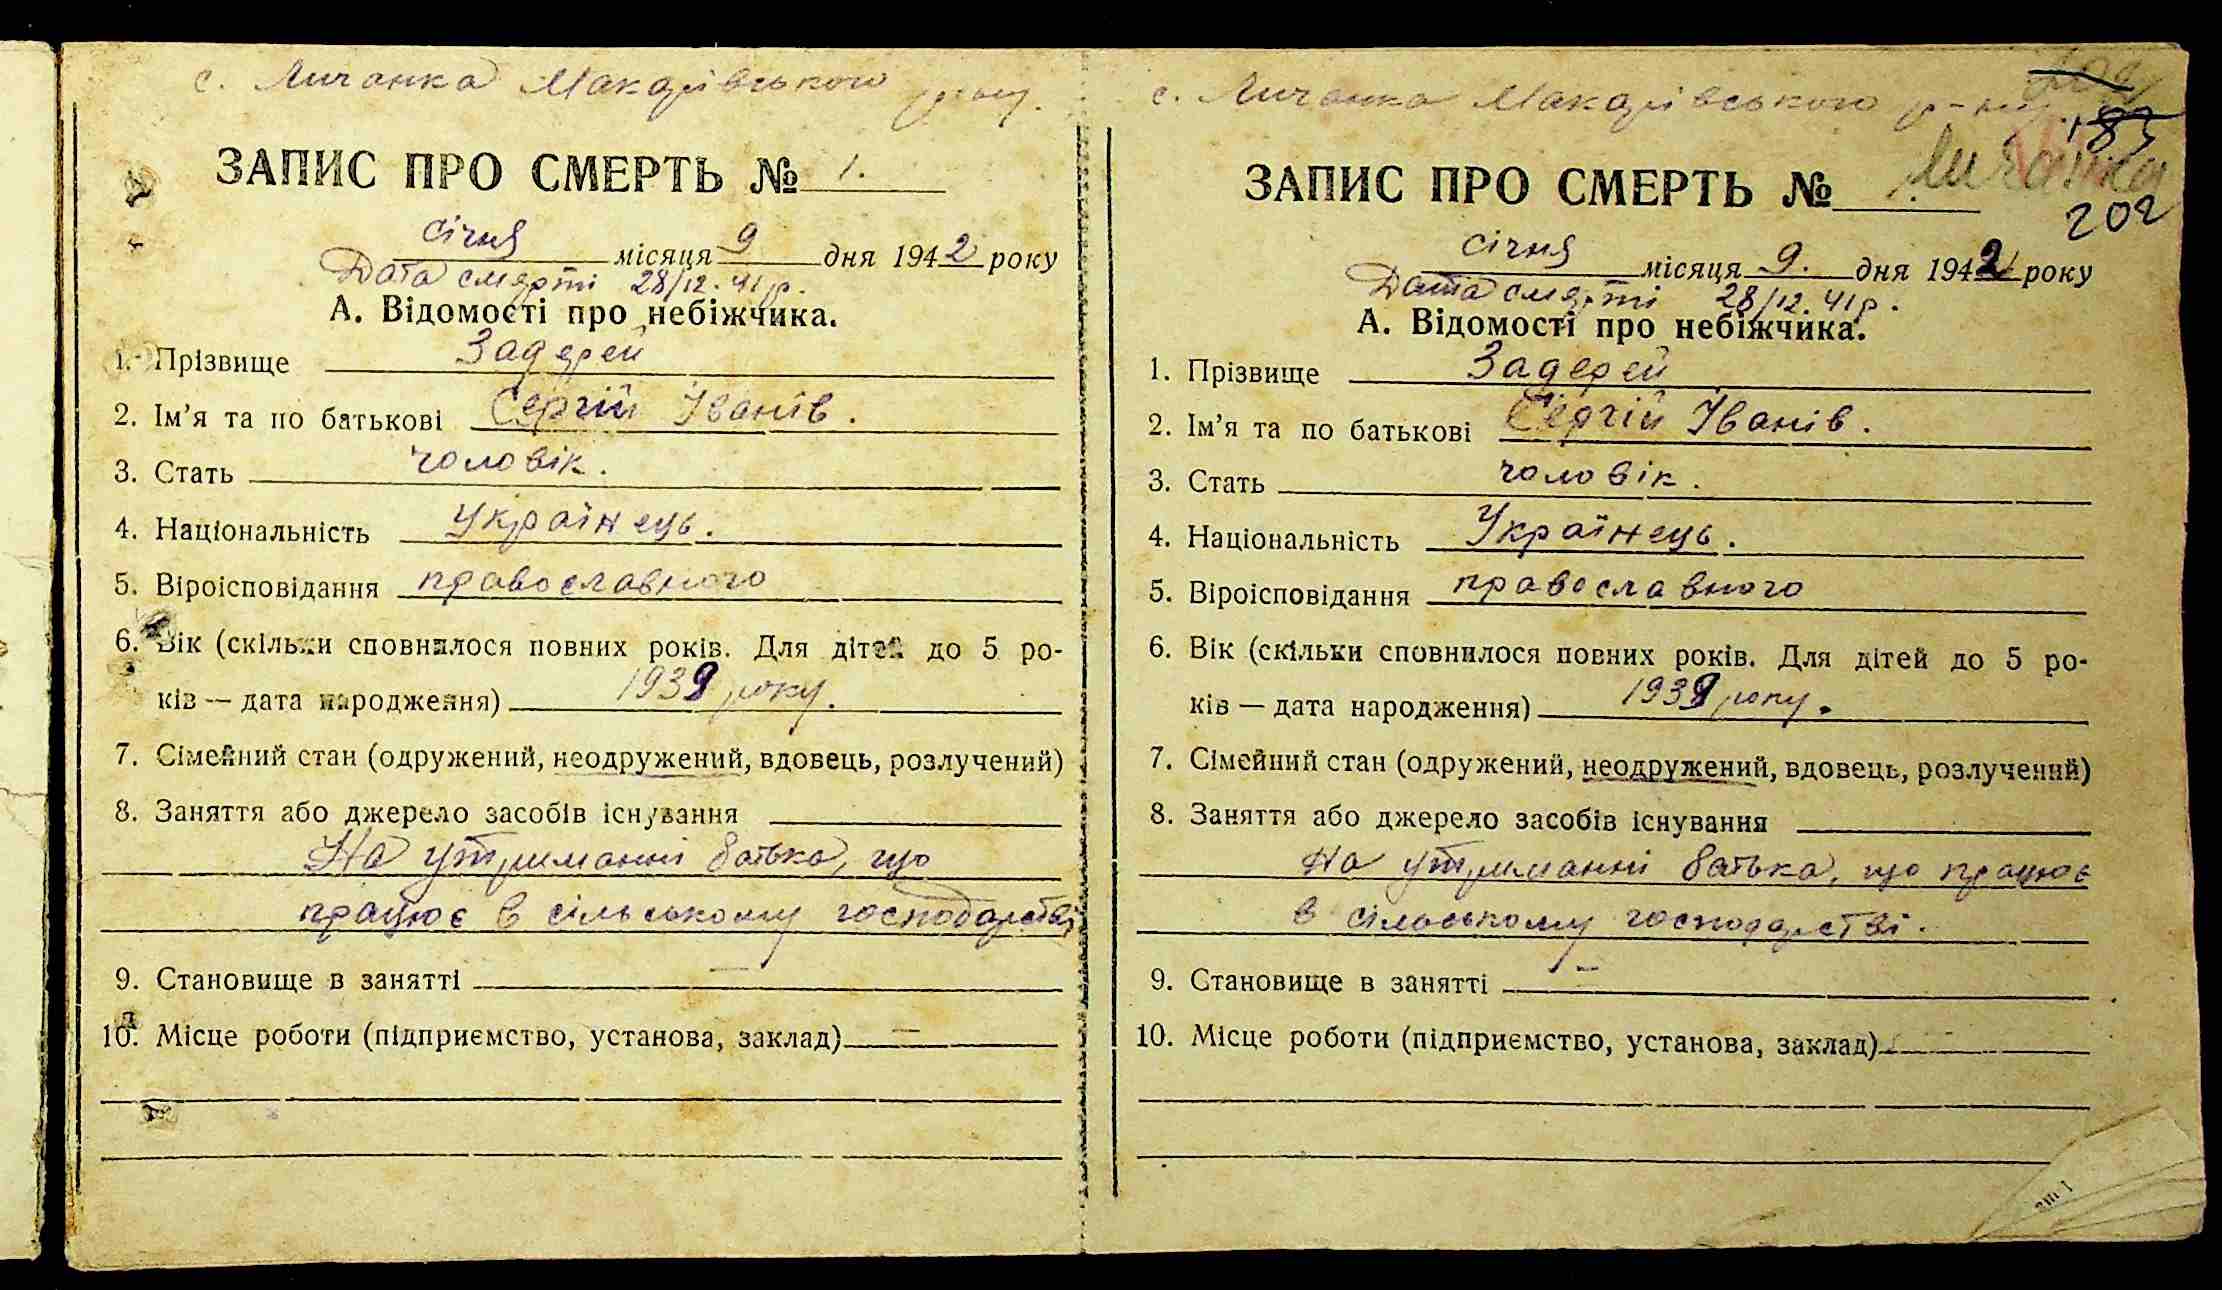 с. Личанка Макарівського р-ну.
ЗАПИС ПРО СМЕРТЬ № 1.
січня місяця 9 дня 1942 року
Дата смерті 28/12. 41 р.
А. Відомості про небіжчика.
1. Прізвище Задерей
2. Ім'я та по батькові Сергій Іванів.
3. Стать чоловік.
4. Національність Українець.
5. Віроісповідання православного
6. Вік (скільки сповнилося повних років. Для дітей до 5 ро-
ків — дата народження) 1939 року.
7. Сімейний стан (одружений, неодружений, вдовець, розлучений)
8. Заняття або джерело засобів існування
На утриманні батька, що
працює в сільському господарстві
9. Становище в занятті —
10. Місце роботи (підприємство, установа, заклад) —
с. Личанка Макарівського р-ну.
183
Личанка
202
ЗАПИС ПРО СМЕРТЬ № 1.
січня місяця 9. дня 1942 року
Дата смерті 28/12. 41 р.
А. Відомості про небіжчика.
1. Прізвище Задерей
2. Ім'я та по батькові Сергій Іванів.
3. Стать чоловік.
4. Національність Українець.
5. Віроісповідання православного
6. Вік (скільки сповнилося повних років. Для дітей до 5 ро-
ків — дата народження) 1939 року.
7. Сімейний стан (одружений, неодружений, вдовець, розлучений)
8. Заняття або джерело засобів існування
На утриманні батька, що працює
в сільському господарстві.
9. Становище в занятті —
10. Місце роботи (підприємство, установа, заклад)